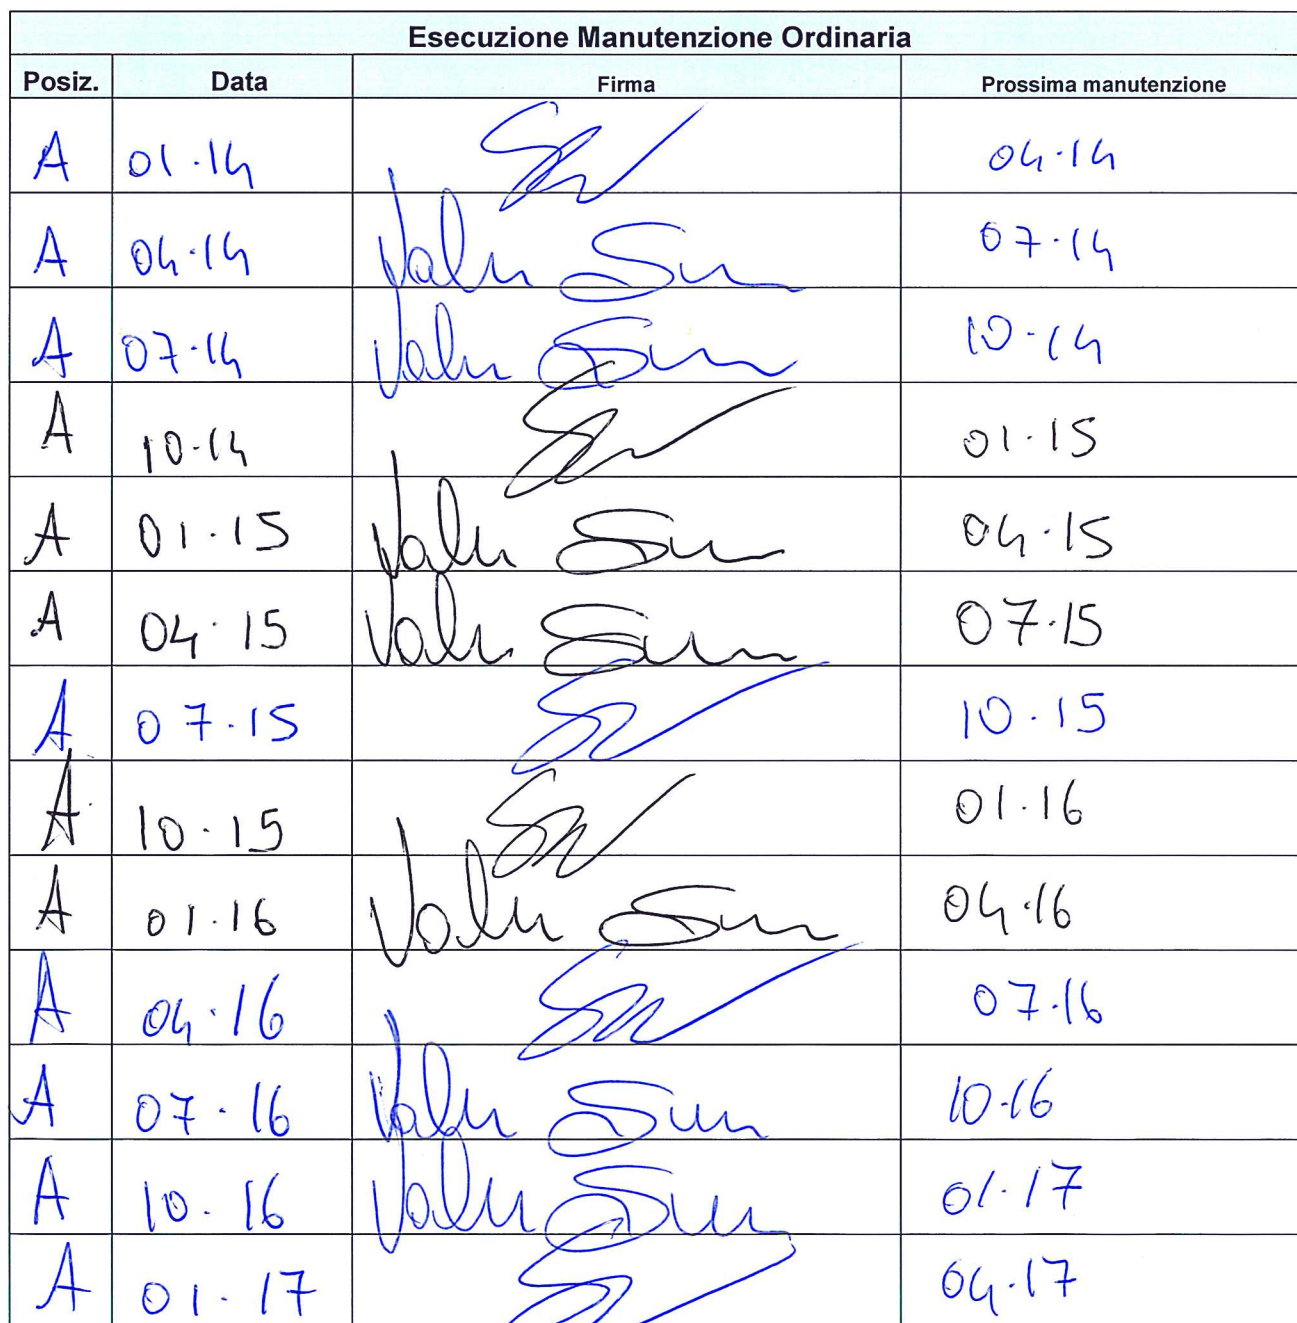 Esecuzione Manutenzione Ordinaria
Posiz. Data Firma Prossima manutenzione
A 01·14 04·14
A 04·14 07·14
A 07·14 10·14
A 10·14 01·15
A 01·15 04·15
A 04·15 07·15
A 07·15 10·15
A 10·15 01·16
A 01·16 04·16
A 04·16 07·16
A 07·16 10·16
A 10·16 01·17
A 01·17 04·17